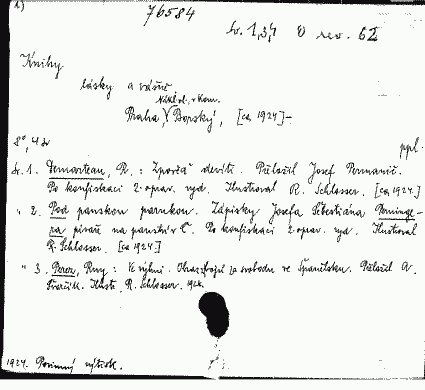 1)
76584
Sv. 1, 3, 4 O rev. 62
Knihy
lásky a vášně
Nákl. vl. v Kom.
Praha, Borský, [ca 1924]–
8°, 4 sv ppl.
Sv. 1. Demarteau, R.: Zpověď devíti. Přeložil Josef Permanič.
Po konfiskaci 2. oprav. vyd. Ilustroval R. Schlosser. [ca 1924.]
" 2. Pod panskou parukou. Zápisky Josefa Šebestiána
písaře na panství v Č. Po konfiskaci 2. oprav. vyd. Ilustroval
R. Schlosser. [ca 1924]
" 3. Perez, Ruy: Ve výhni. Obraz bojů za svobodu ve Španělsku. Přeložil A.
Ilustr. R. Schlosser. 1924.
1924. Povinný výtisk.